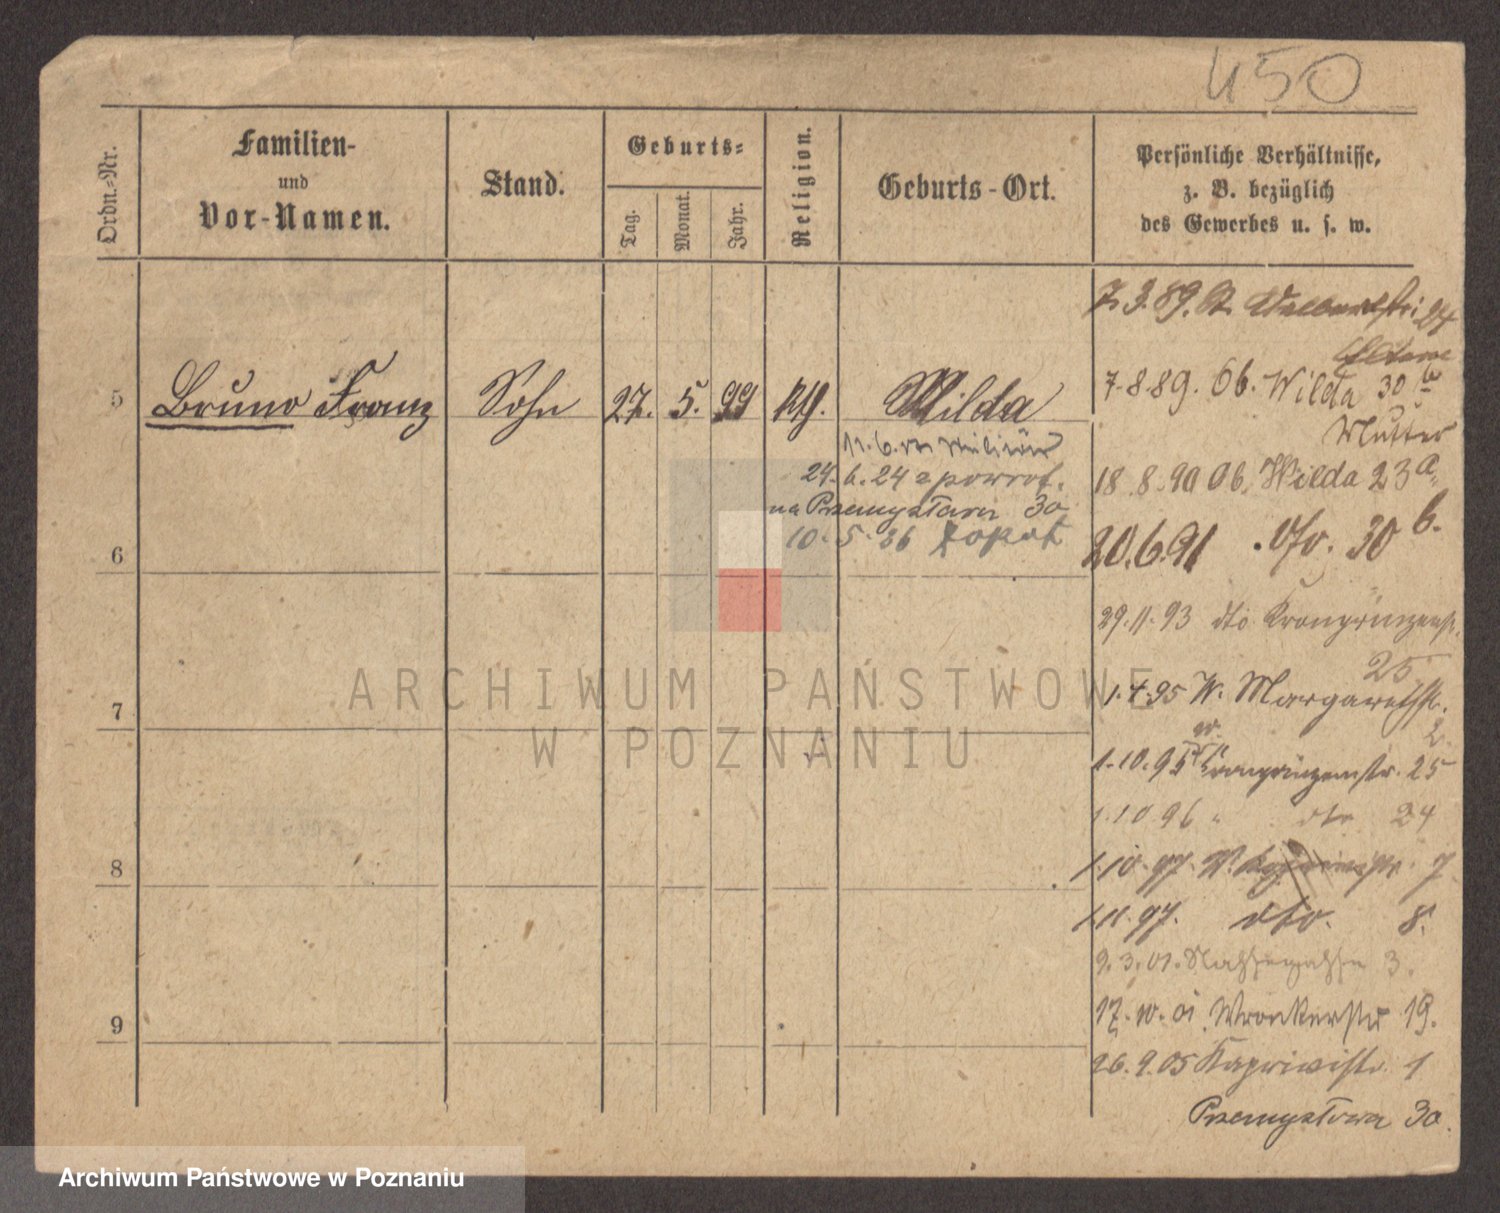 450
Ordn.-Nr.
Familien-
und
Vor-Namen.
Stand.
Geburts-
Tag.
Monat.
Jahr.
Religion.
Geburts-Ort.
Persönliche Verhältnisse,
z. B. bezüglich
des Gewerbes u. s. w.
7.3.89. St. Adalbertstr. 24
Eltern
7.8.89. Ob. Wilda 30 b
Mutter
5 Bruno Franz Sohn 27. 5. 99 Wilda
24.6.24 z powrot.
na Przemysłową 30
10.5.26
18.8.90 Ob. Wilda 23 a
6
20.6.91 dto. 30 b.
29.11.93 dto Kronprinzenstr.
25
7
1.4.95 W. Margarethstr.
2
1.10.95 Kronprinzenstr. 25
1.10 96 " dto 24
8
1.10.97. W. 7
1.11.97. dto. 8.
9.3.01. 3.
9
17.10.01. Wronkerstr 19.
26.9.05 Kaprivistr. 1
Przemysłowa 30.
ARCHIWUM PAŃSTWOWE
W POZNANIU
Archiwum Państwowe w Poznaniu